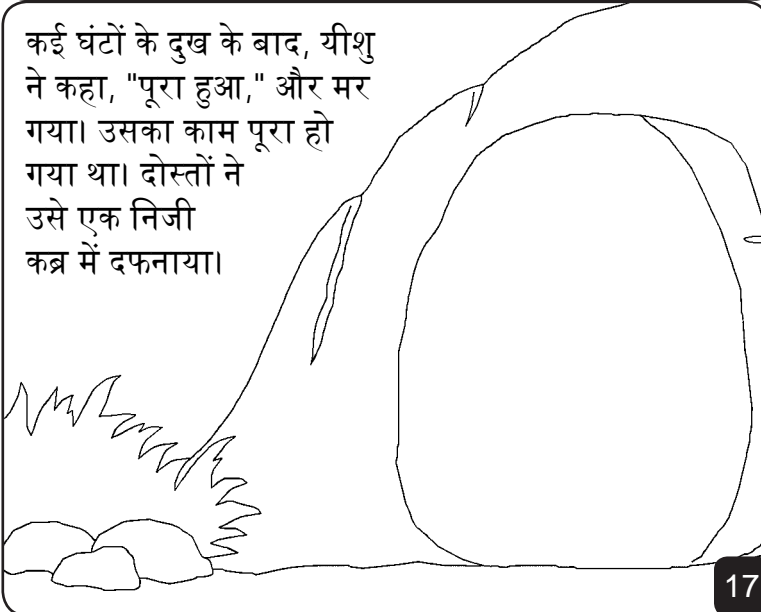 कई घंटों के दुख के बाद, यीशु
ने कहा, "पूरा हुआ," और मर
गया। उसका काम पूरा हो
गया था। दोस्तों ने
उसे एक निजी
कब्र में दफनाया।
17